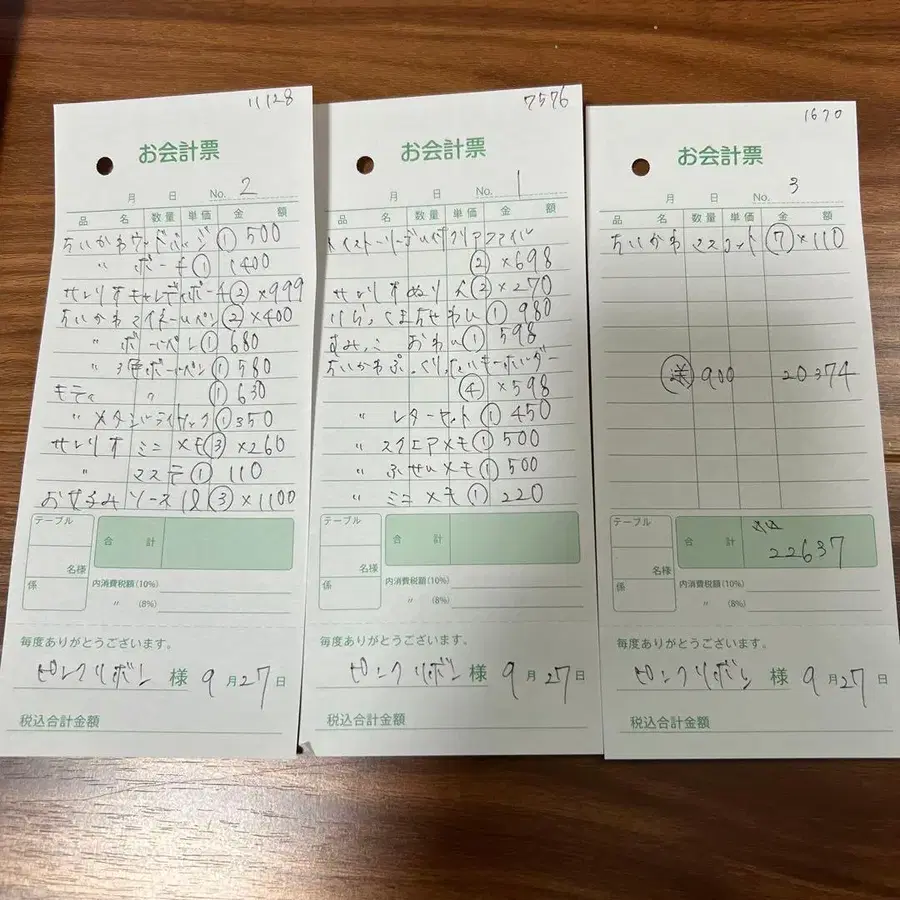 11128
お会計票
月 日 No. 2
品 名 数量 単価 金 額
ちいかわウッドバッジ ① 500
〃 ポーチ ① 1400
サンリオキャレディポーチ ② ×999
ちいかわマイネームペン ② ×400
〃 ボールペン ① 680
〃 3色ボールペン ① 580
モフィ 〃 ① 630
〃 ① 350
サンリオ ミニメモ ③ ×260
〃 マステ ① 110
お好みソース 1ℓ ③ ×1100
テーブル
名様
係
合 計
内消費税額(10%)
〃 (8%)
毎度ありがとうございます。
ピンクリボン 様 9月27日
税込合計金額
7576
お会計票
月 日 No. 1
品 名 数量 単価 金 額
クリアファイル
② ×698
サンリオぬりえ ② ×270
① 980
すみっこ おわん ① 598
ちいかわぷっくりぬいキーホルダー
④ ×598
〃 レターセット ① 450
〃 スクエアメモ ① 500
〃 ふせんメモ ① 500
〃 ミニメモ ① 220
テーブル
名様
係
合 計
内消費税額(10%)
〃 (8%)
毎度ありがとうございます。
ピンクリボン 様 9月27日
税込合計金額
1670
お会計票
月 日 No. 3
品 名 数量 単価 金 額
ちいかわ マスコット ⑦ ×110
送 900 20374
テーブル
名様
係
合 計
22637
内消費税額(10%)
〃 (8%)
毎度ありがとうございます。
ピンクリボン 様 9月27日
税込合計金額